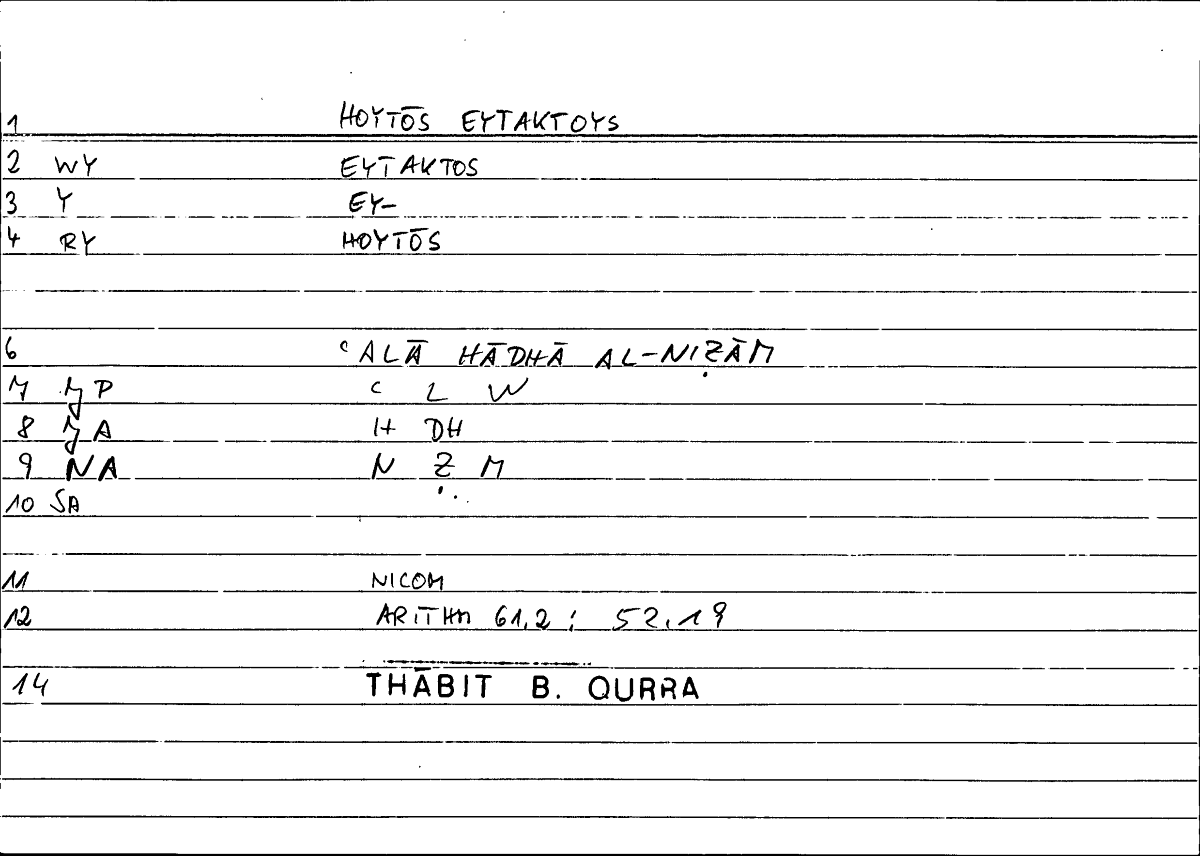 1 HOYTŌS EYTAKTOYS
2 WY EYTAKTOS
3 Y EY-
4 RY HOYTŌS
6 ʿALĀ HĀDHĀ AL-NIẒĀM
7 JP ʿ L W
8 JA H DH
9 NA N Ẓ M
10 SA
11 NICOM
12 ARITHM 61.2 ; 52.19
14 THĀBIT B. QURRA